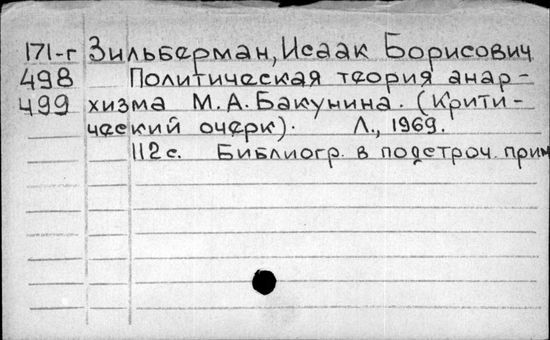 171-г Зильберман, Исаак Борисович
498 Политическая теория анар-
499 хизма М. А. Бакунина. (Крити-
ческий очерк). Л., 1969.
112 с. Библиогр. в подстроч. прим